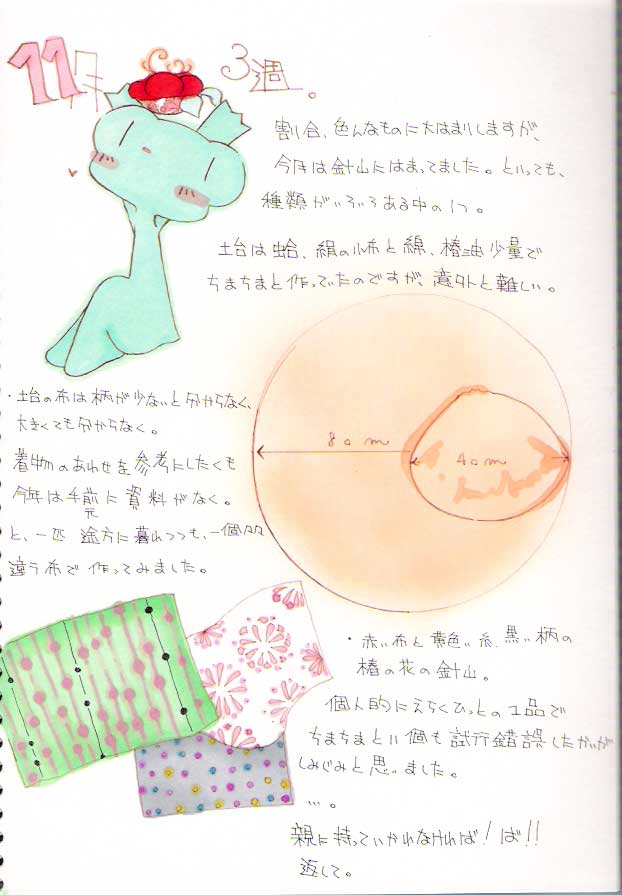 11月 3週。
割合、色んなものに大はまりしますが、
今年は針山にはまってました。といっても、
種類がいろいろある中の1つ。
土台は蛤、絹の小布と綿、椿油少量で
ちまちまと作っていたのですが、意外と難しい。
・土台の布は柄が少ないと分からなく、
大きくても分からなく。
着物のあわせを参考にしたくも
今年は手前に資料がなく。
元
と、一匹 途方に暮れつつも、一個々々
違う布で 作ってみました。
8cm
4cm
・赤い布と黄色い糸、黒い柄の
椿の花の針山。
個人的にえらくひっとの1品で
ちまちまと11個も試行錯誤したかいが
しみじみと思いました。
…。
親に持っていかれなければ!ば!!
返して。